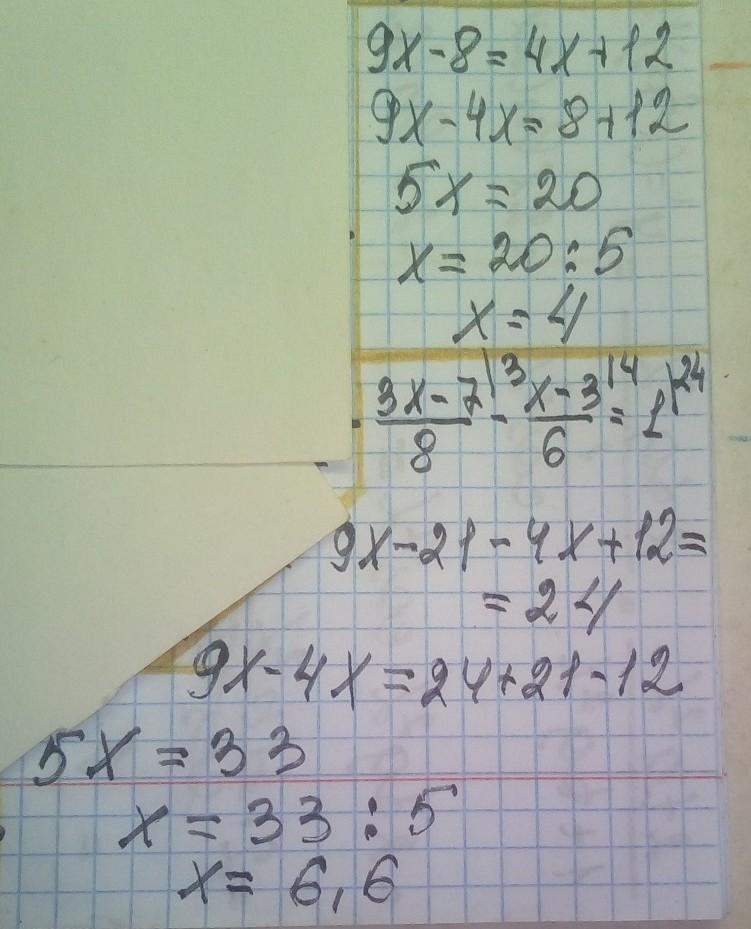 9x-8=4x+12
9x-4x=8+12
5x=20
x=20:5
x=4
3x-7\3 / 8 - x-3\4 / 6 = 1\24
9x-21-4x+12=
=24
9x-4x=24+21-12
5x=33
x=33:5
x=6,6